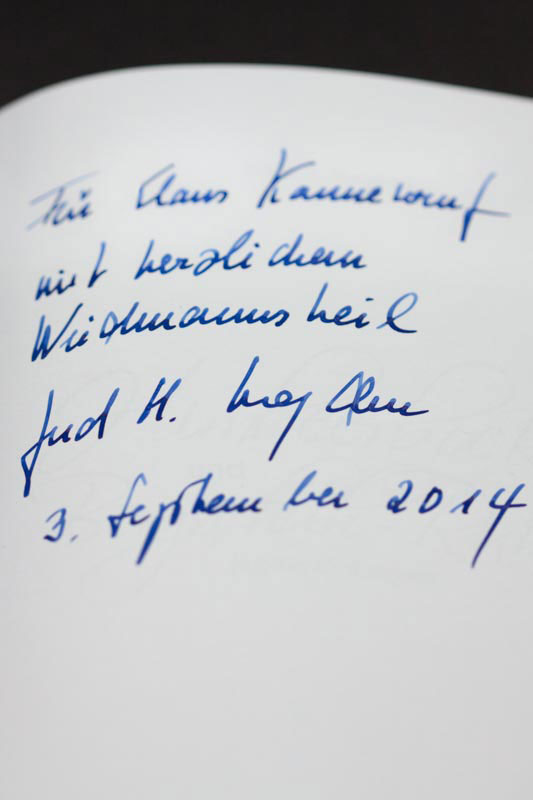 Für Claus Kannewurf
mit herzlichem
Weidmannsheil
H.
3. September 2014